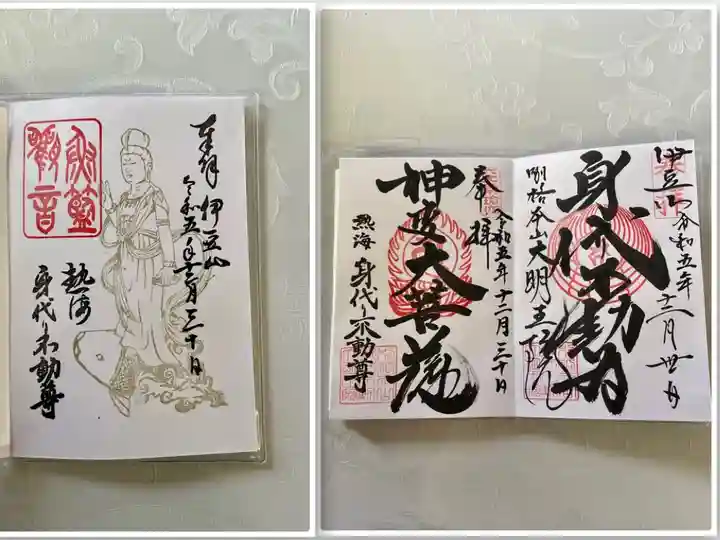 奉拝 伊豆山
令和五年十二月三十日
魚籃
觀音
熱海
身代り不動尊
伊豆山 令和五年十二月卅日
身代不動
別格本山大明王院
奉拝
令和五年十二月三十日
神変大菩薩
熱海 身代り不動尊